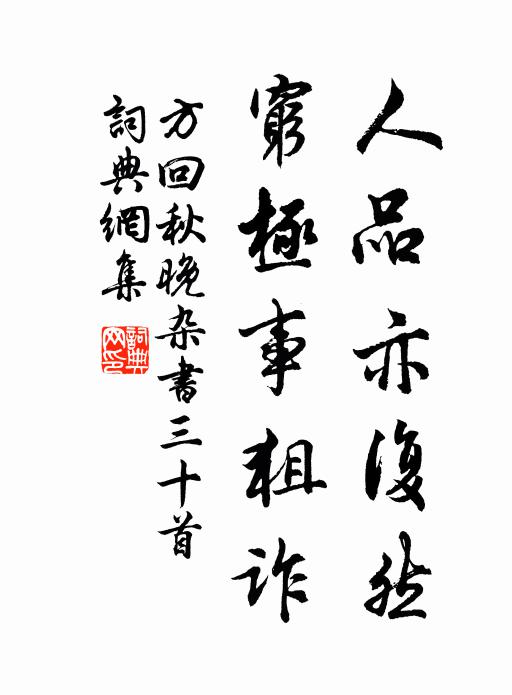 人品亦復然
窮極事狙詐
方回秋晚杂書三十首
詞典網集
詞典網印